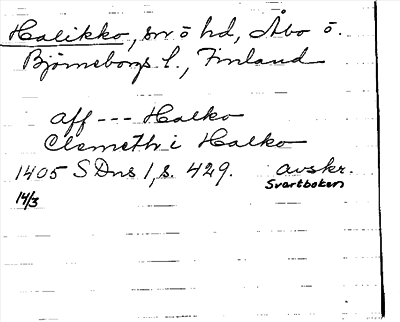 Halikko, sn ö hd, Åbo ö.
Björneborgs l., Finland
aff --- Halko
Clemeth i Halko
1405 SDns 1, s. 429. avskr.
Svartboken
14/3